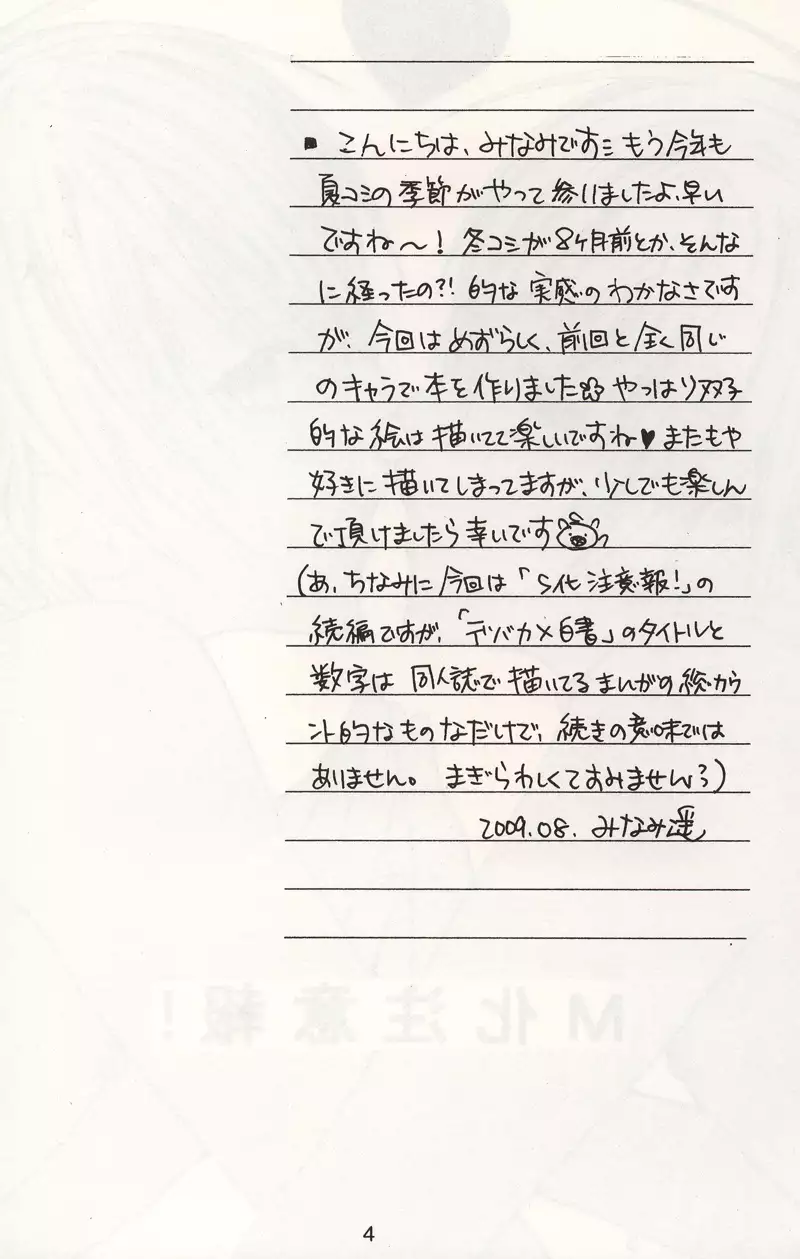 ■ こんにちは、みなみです もう今年も
夏コミの季節がやって参りましたよ、早い
ですね〜！ 冬コミが8ヶ月前とか、そんな
に経ったの?! 的な 実感の わかなさです
が、今回は めずらしく、前回と 全く同じ
のキャラで本を作りました やっぱり双子
的な絵は描いてて楽しいですね♥ またもや
好きに描いてしまってますが、少しでも楽しん
で頂けましたら幸いです
(あ、ちなみに今回は「S化注意報！」の
続編ですが、「デバカメ白書」のタイトルと
数字は 同人誌で描いてるまんがの総カウ
ント的なものなだけで、続きの意味では
ありません。 まぎらわしくてすみません)
2009.08. みなみ遥
M化注意報！
4